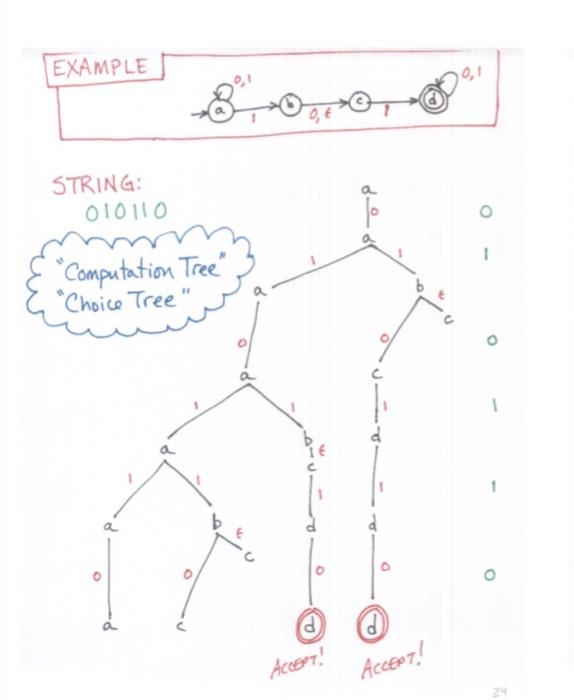 EXAMPLE
0,1
0,1
a
b
c
d
1
0,ε
1
STRING:
010110
"Computation Tree"
"Choice Tree"
a
0
0
a
1
1
1
a
b
ε
c
0
0
0
a
c
1
1
1
1
a
b
ε
c
d
1
1
1
1
1
a
b
ε
c
d
d
0
0
0
0
0
a
c
d
d
ACCEPT!
ACCEPT!
24